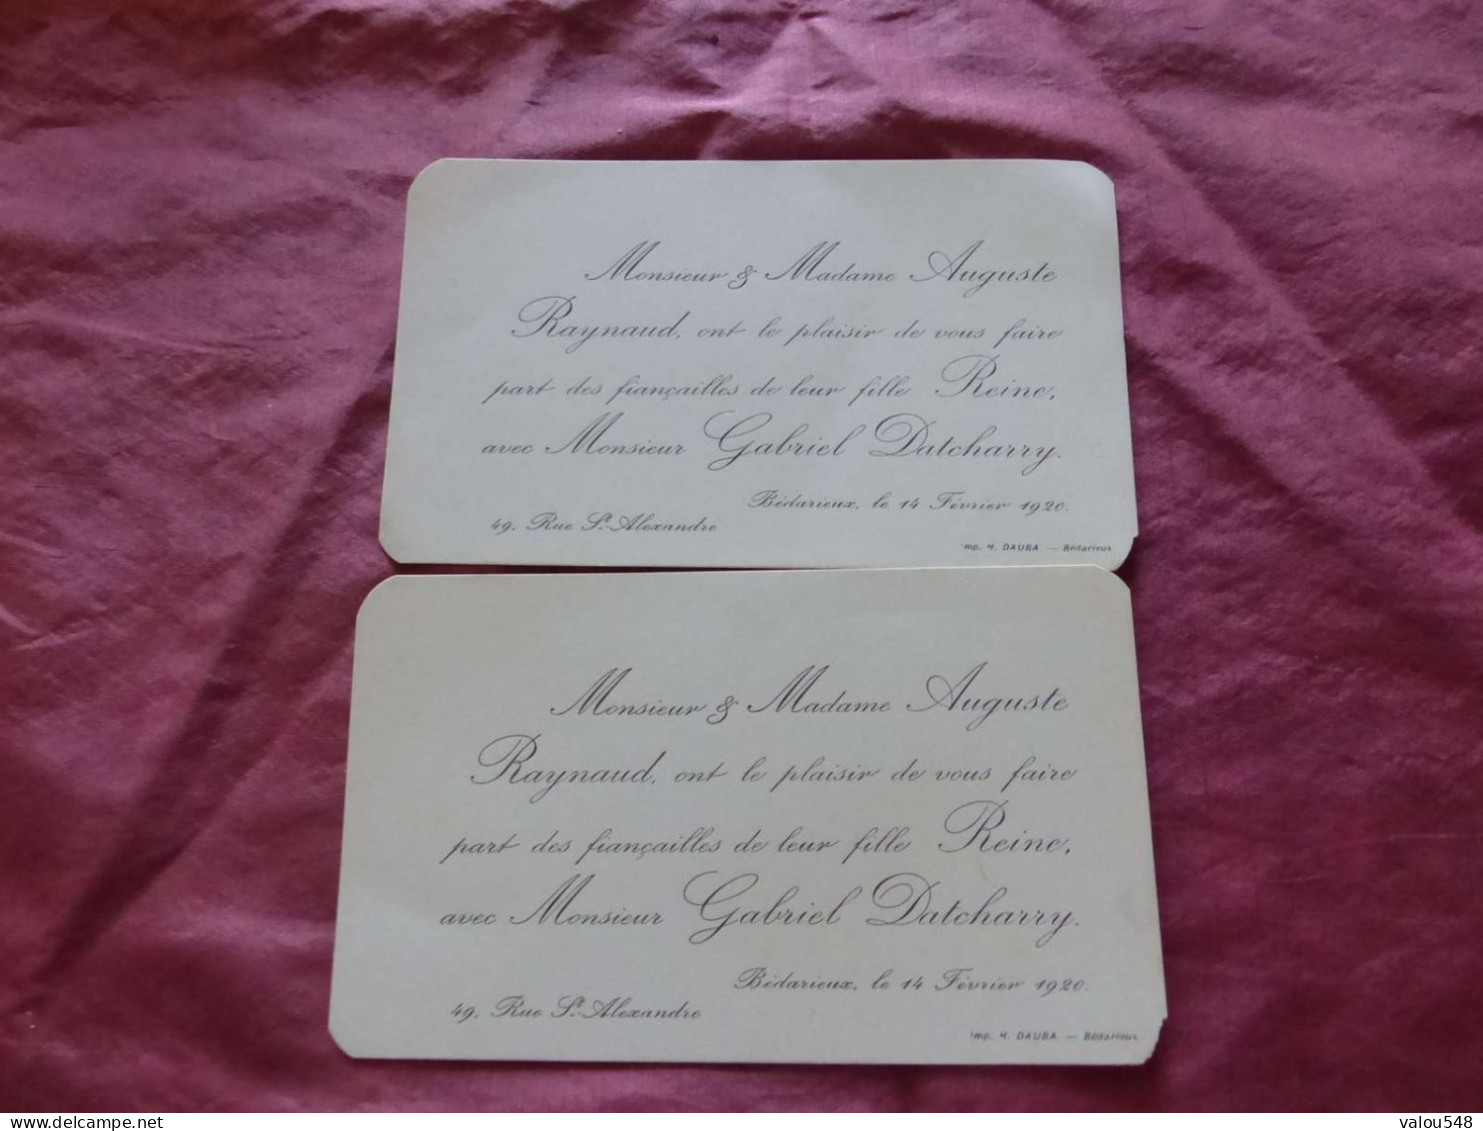 Monsieur & Madame Auguste
Raynaud, ont le plaisir de vous faire
part des fiançailles de leur fille Reine,
avec Monsieur Gabriel Datcharry.
Bédarieux, le 14 Février 1920.
49, Rue St-Alexandre
Imp. H. DAUBA — Bédarieux
Monsieur & Madame Auguste
Raynaud, ont le plaisir de vous faire
part des fiançailles de leur fille Reine,
avec Monsieur Gabriel Datcharry.
Bédarieux, le 14 Février 1920.
49, Rue St-Alexandre
Imp. H. DAUBA — Bédarieux
www.delcampe.net
valou548